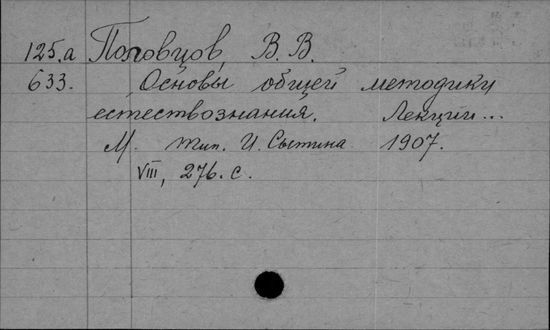 125.а Половцов, В. В.
633. Основы общей методики
естествознания. Лекции...
М. тип. И. Сытина 1907.
VIII, 276. с.